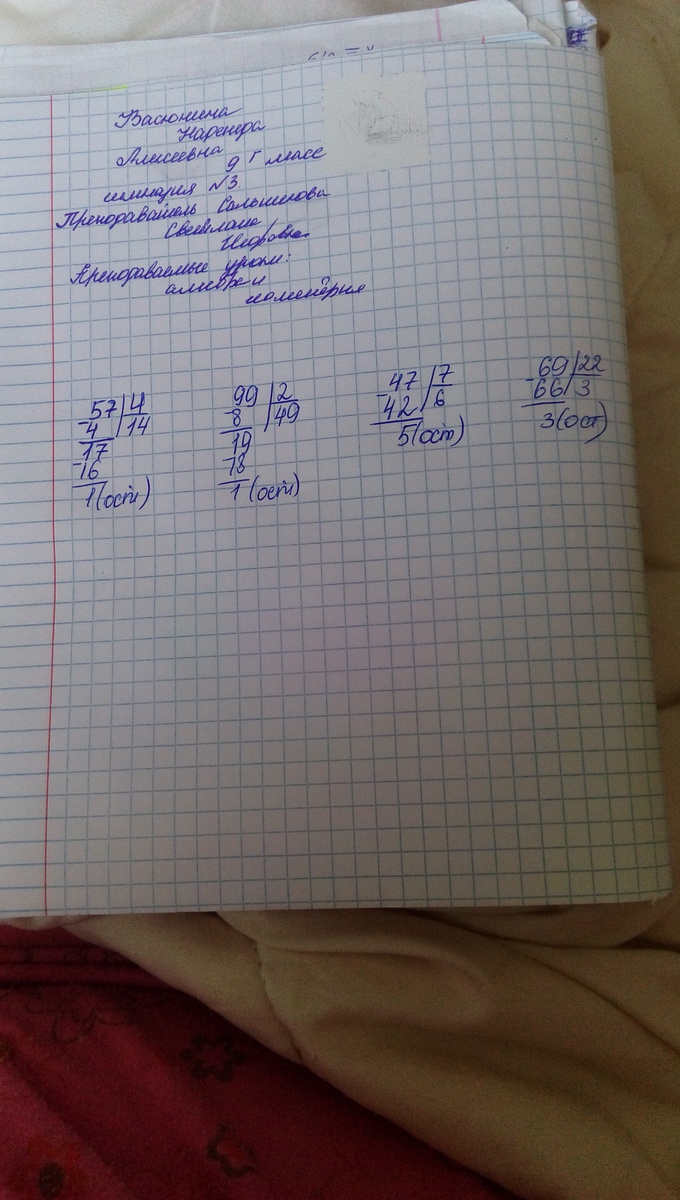 Васюнина
Алексеевна
9 Г класс
гимназия №3.
Преподаватель Сальникова
Светлана
Преподаваемые уроки:
57 4
4 14
17
16
1(ост)
99 2
8 49
19
18
1(ост)
47 7
42 6
5(ост)
69 22
66 3
3(ост)